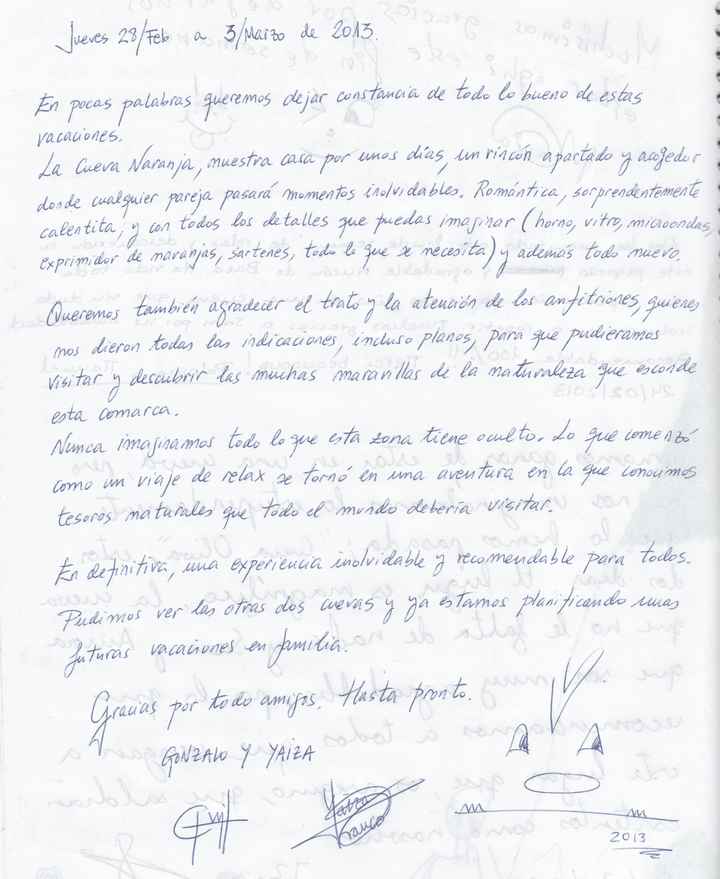 Jueves 28/Feb a 3/Marzo de 2013.
En pocas palabras queremos dejar constancia de todo lo bueno de estas
vacaciones.
La Cueva Naranja, nuestra casa por unos días, un rincón apartado y acogedor
donde cualquier pareja pasará momentos inolvidables. Romántica, sorprendentemente
calentita, y con todos los detalles que puedas imaginar (horno, vitro, microondas,
exprimidor de naranjas, sartenes, todo lo que se necesita) y además todo nuevo.
Queremos también agradecer el trato y la atención de los anfitriones, quienes
nos dieron todas las indicaciones, incluso planos, para que pudieramos
visitar y descubrir las muchas maravillas de la naturaleza que esconde
esta comarca.
Nunca imaginamos todo lo que esta zona tiene oculto. Lo que comenzó
como un viaje de relax se tornó en una aventura en la que conocimos
tesoros naturales que todo el mundo debería visitar.
En definitiva, una experiencia inolvidable y recomendable para todos.
Pudimos ver las otras dos cuevas y ya estamos planificando unas
futuras vacaciones en familia.
Gracias por todo amigos. Hasta pronto.
GONZALO Y YAIZA
Yaiza
Franco
2013